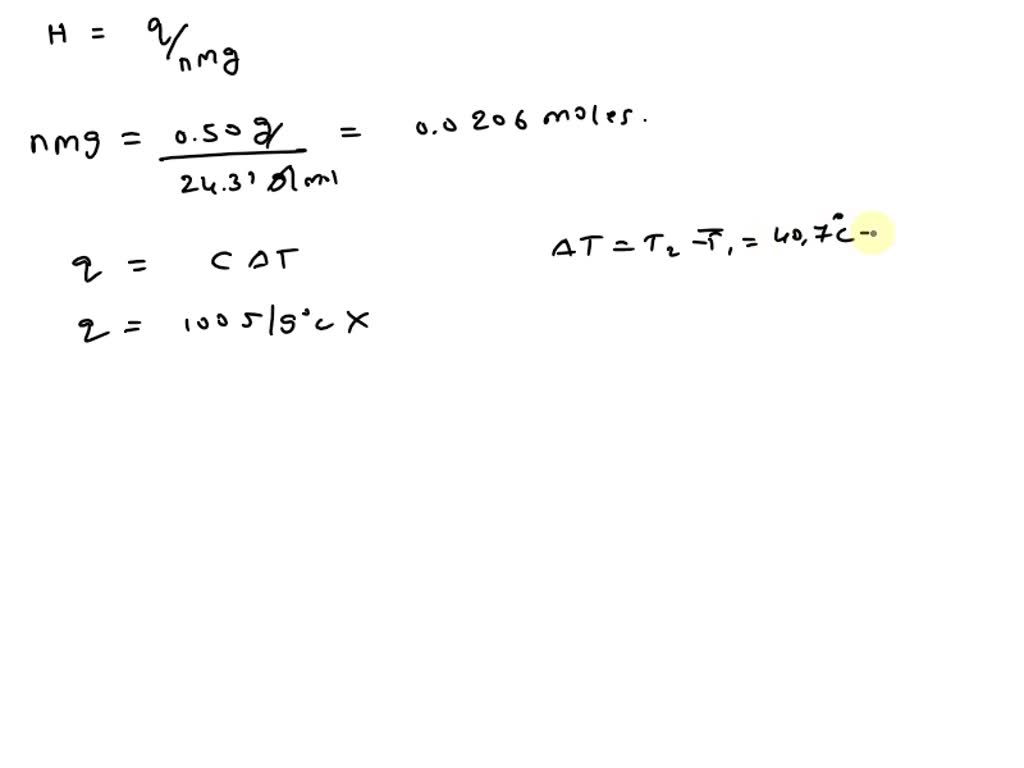 H = q/nmg
nmg = 0.50 g / 24.31 g/mol = 0.0206 moles.
q = C ΔT
ΔT = T₂ - T₁ = 40.7°C -
q = 100 5/g°C X